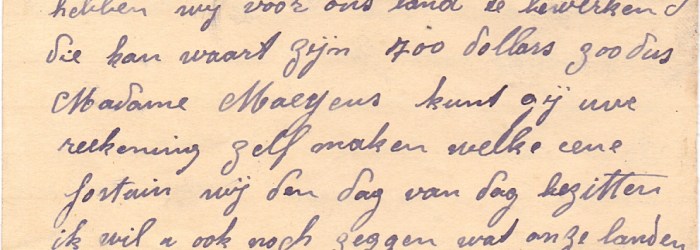 hebben wij voor ons land te bewerken
die kan waart zijn 700 dollars zoodus
Madame Maeyens kunt gij uwe
reekening zelf maken welke eene
fortuin wij den dag van dag bezitten
ik wil u ook noch zeggen wat onze landen